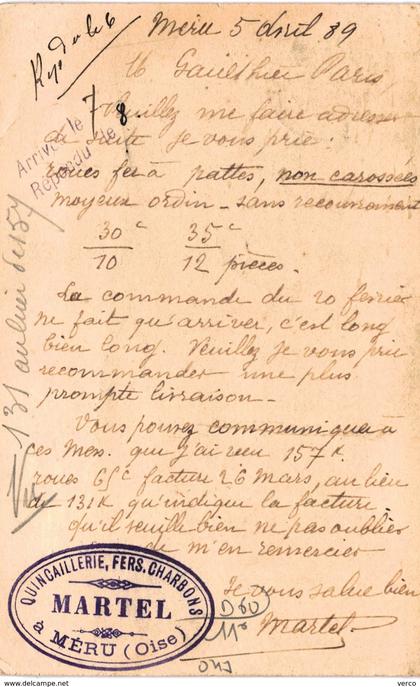 Méru 5 Avril 89
Rep du le 6
M Gaulthier Paris
Veuillez me faire adresser
de suite je vous prie :
Arrivé le 7
Répondu le 8
roues fer à pattes, non carossées
moyeux ordin - sans recouvrement
30 c 35 c
10 12 pièces.
La commande du 20 février
ne fait qu'arriver, c'est long
bien long. Veuillez je vous prie
recommander une plus
prompte livraison -
Vous pouvez communiquer à
ces Mess. que j'ai reçu 157 K.
roues 65c facture 26 Mars, au lieu
de 131K qu'indique la facture,
qu'il veuille bien ne pas oublier
de m'en remercier
Je vous salue bien
Martel
131 au lieu de 157
Vu
QUINCAILLERIE, FERS, CHARBONS
MARTEL
à MÉRU (Oise)
D60
110
www.delcampe.net
verco